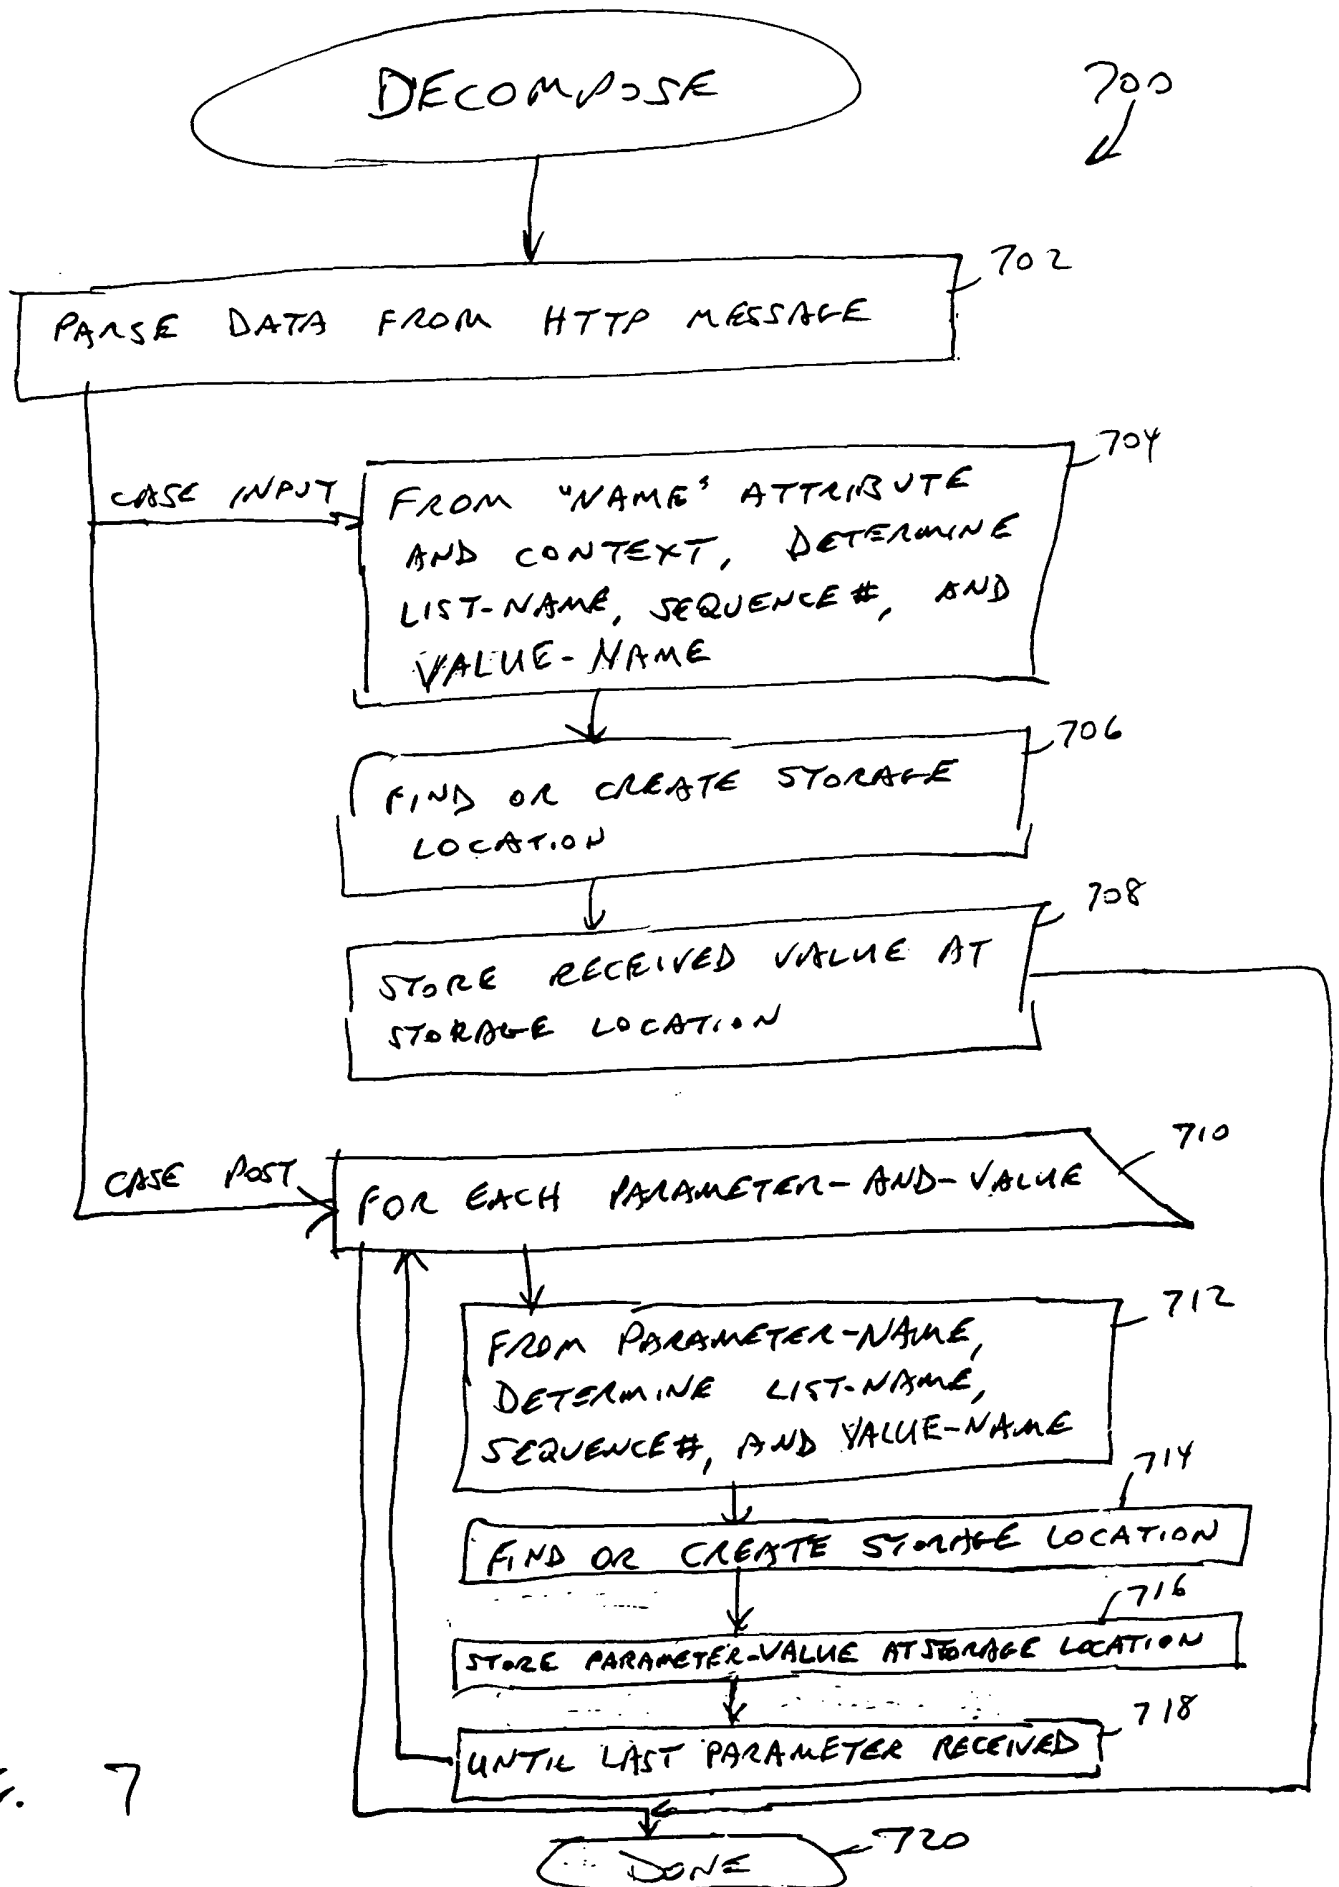 DECOMPOSE
700
702
PARSE DATA FROM HTTP MESSAGE
704
CASE INPUT
FROM "NAME" ATTRIBUTE
AND CONTEXT, DETERMINE
LIST-NAME, SEQUENCE#, AND
VALUE-NAME
706
FIND OR CREATE STORAGE
LOCATION
708
STORE RECEIVED VALUE AT
STORAGE LOCATION
710
CASE POST
FOR EACH PARAMETER-AND-VALUE
712
FROM PARAMETER-NAME,
DETERMINE LIST-NAME,
SEQUENCE#, AND VALUE-NAME
714
FIND OR CREATE STORAGE LOCATION
716
STORE PARAMETER-VALUE AT STORAGE LOCATION
718
UNTIL LAST PARAMETER RECEIVED
7
720
DONE